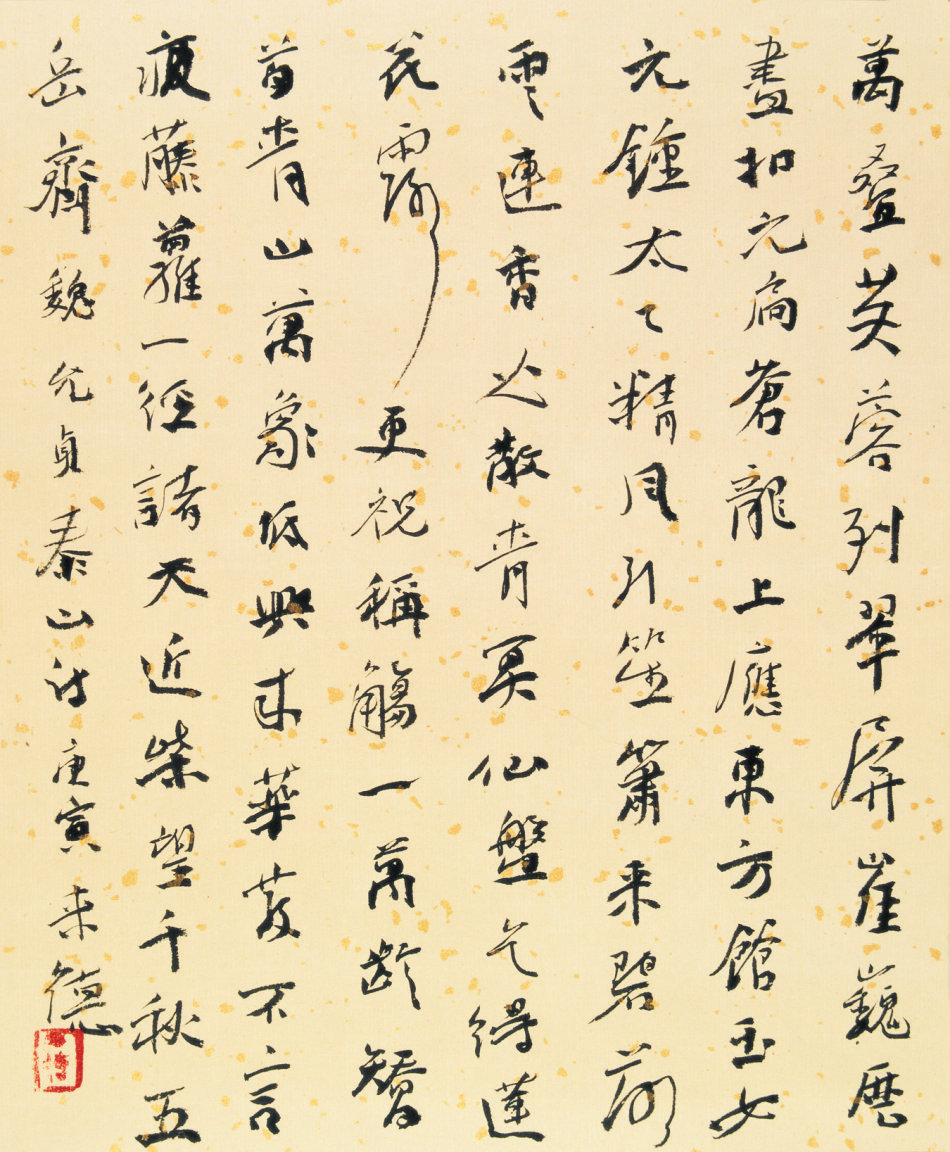 萬叠芙蓉列翠屏崔巍歷
盡扣元扃蒼龍上應東方館玉女
元鍾太乙精月引笙簫來碧落
雲連香火散青冥仙盤乞得蓮
花露更祝稱觴一萬齡矯
首青山萬象低興來華髮不言
疲藤蘿一徑諸天近柴望千秋五
岳齊魏允貞泰山詩庚寅來德